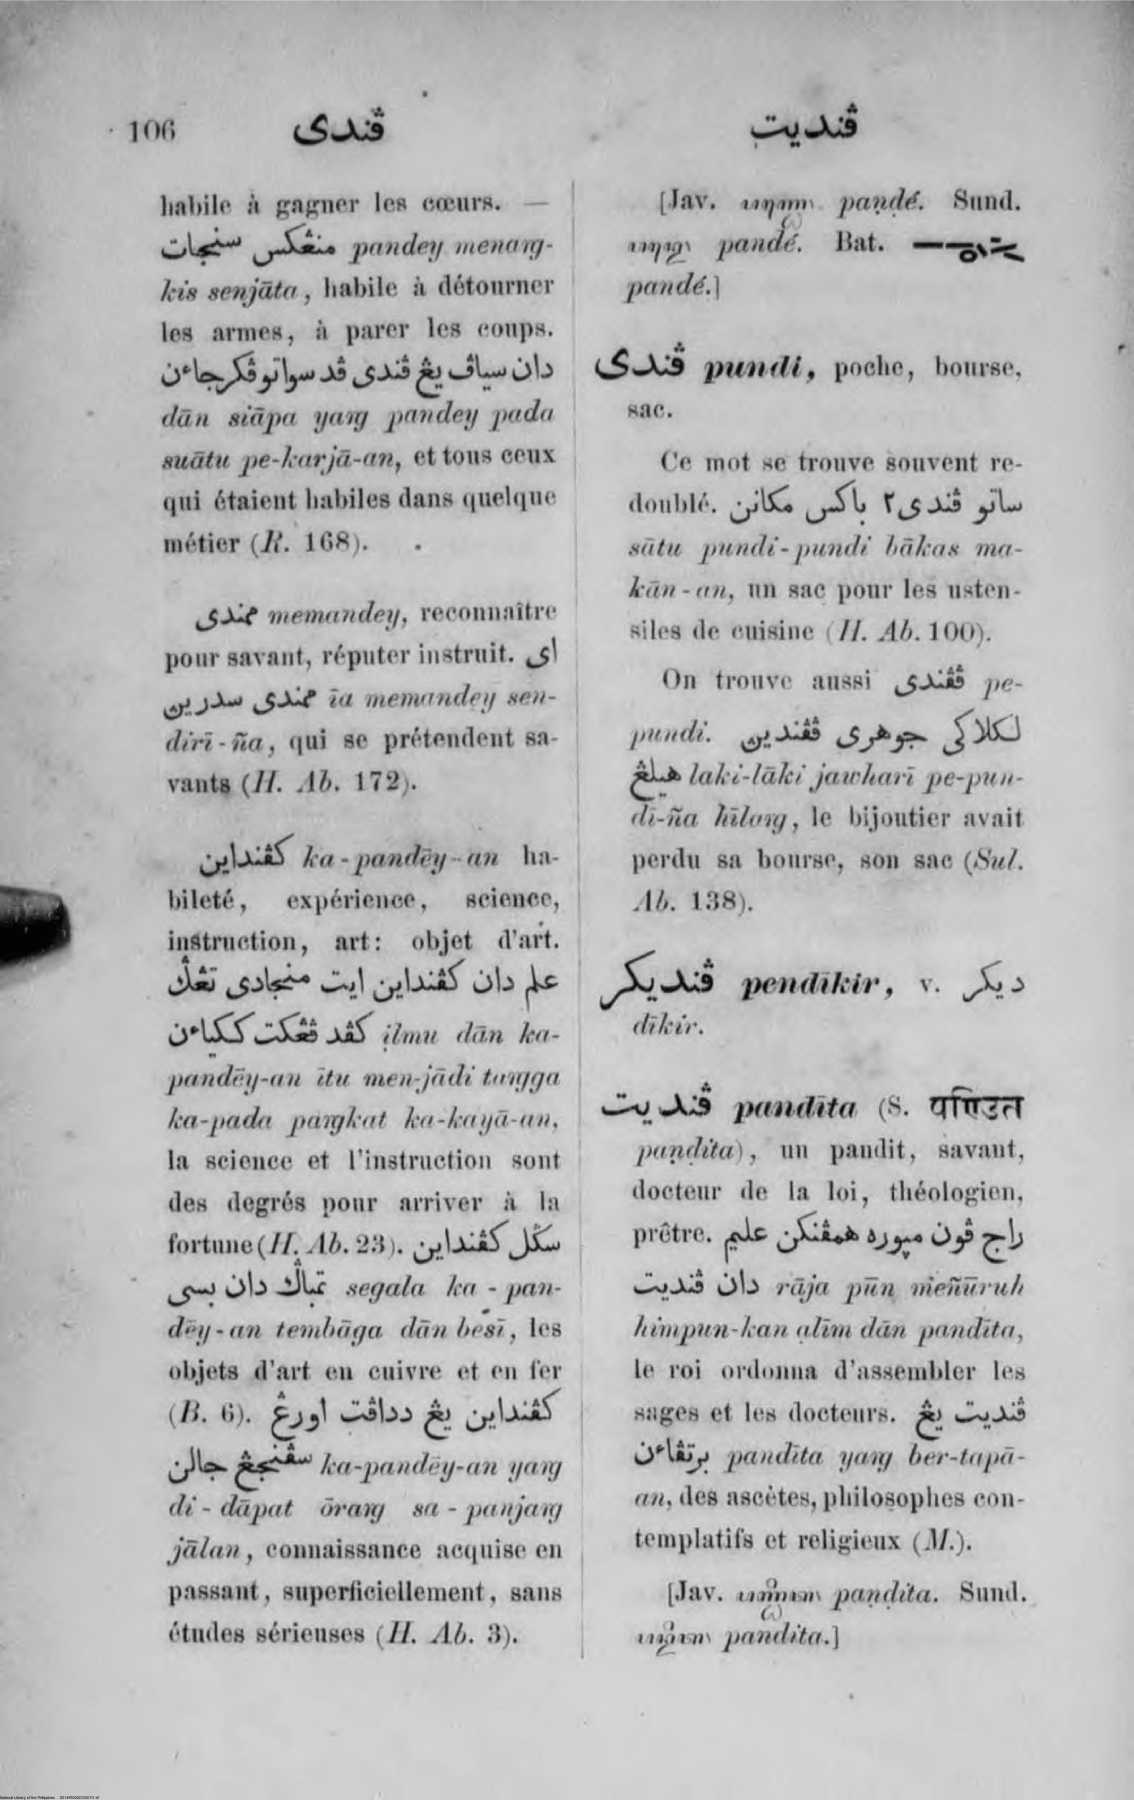 106 ڤندى ڤنديت
habile à gagner les cœurs. —
منڠکس سنجات pandey menaŋ-
kis senjāta, habile à détourner
les armes, à parer les coups.
دان سياڤ يڠ ڤندى ڤد سواتو ڤکرجاءن
dān siāpa yaŋ pandey pada
suātu pe-karjā-an, et tous ceux
qui étaient habiles dans quelque
métier (R. 168).
ممندى memandey, reconnaître
pour savant, réputer instruit. اى
ممندى سدرين īa memandey sen-
dirī-ña, qui se prétendent sa-
vants (H. Ab. 172).
کڤنداين ka-pandēy-an ha-
bileté, expérience, science,
instruction, art: objet d'art.
علم دان کڤنداين ايت منجادى تڠݢ
کڤد ڤڠکت ککياءن ilmu dān ka-
pandēy-an ītu men-jādi taŋga
ka-pada paŋkat ka-kayā-an,
la science et l'instruction sont
des degrés pour arriver à la
fortune (H. Ab. 23). سݢل کڤنداين
تمباݢ دان بسى segala ka-pan-
dēy-an tembāga dān besī, les
objets d'art en cuivre et en fer
(B. 6). کڤنداين يڠ دداڤت اورڠ
سڤنجڠ جالن ka-pandēy-an yaŋ
di-dāpat ōraŋ sa-panjaŋ
jālan, connaissance acquise en
passant, superficiellement, sans
études sérieuses (H. Ab. 3).
[Jav. paṇḍé. Sund.
pandé. Bat.
pandé.]
ڤندى pundi, poche, bourse,
sac.
Ce mot se trouve souvent re-
doublé. ساتو ڤندى٢ باکس مکانن
sātu pundi-pundi bākas ma-
kān-an, un sac pour les usten-
siles de cuisine (H. Ab. 100).
On trouve aussi ڤڤندى pe-
pundi. لکلاکى جوهرى ڤڤندين
هيلڠ laki-lāki jawharī pe-pun-
dī-ña hīlaŋ, le bijoutier avait
perdu sa bourse, son sac (Sul.
Ab. 138).
ڤنديکر pendīkir, v. ديکر
dīkir.
ڤنديت pandīta (S. पण्डित
paṇḍita), un pandit, savant,
docteur de la loi, théologien,
prêtre. راج ڤون مپوره همڤنکن عليم
دان ڤنديت rāja pūn meñūruh
himpun-kan alīm dān pandīta,
le roi ordonna d'assembler les
sages et les docteurs. ڤنديت يڠ
برتڤاءن pandīta yaŋ ber-tapā-
an, des ascètes, philosophes con-
templatifs et religieux (M.).
[Jav. paṇḍita. Sund.
pandita.]